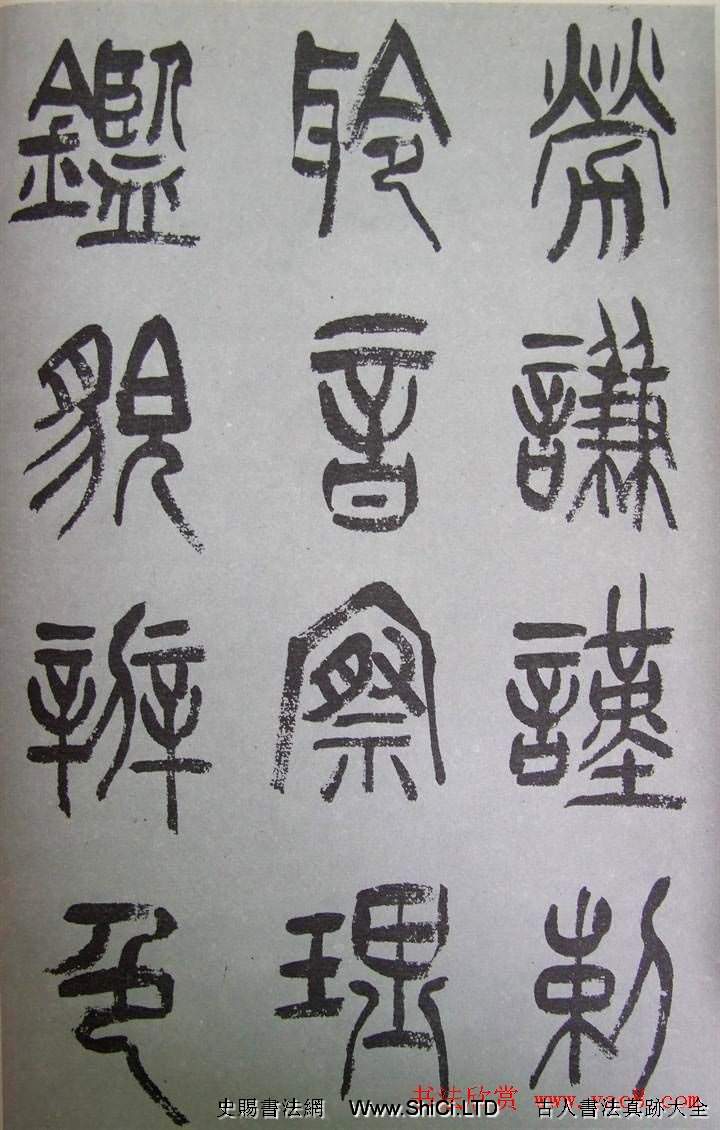 勞謙謹勅
聆音察理
鑑貌辨色
书法欣赏 www.yac8.com
史賜書法網 Www.ShiCi.LTD 古人書法真跡大全